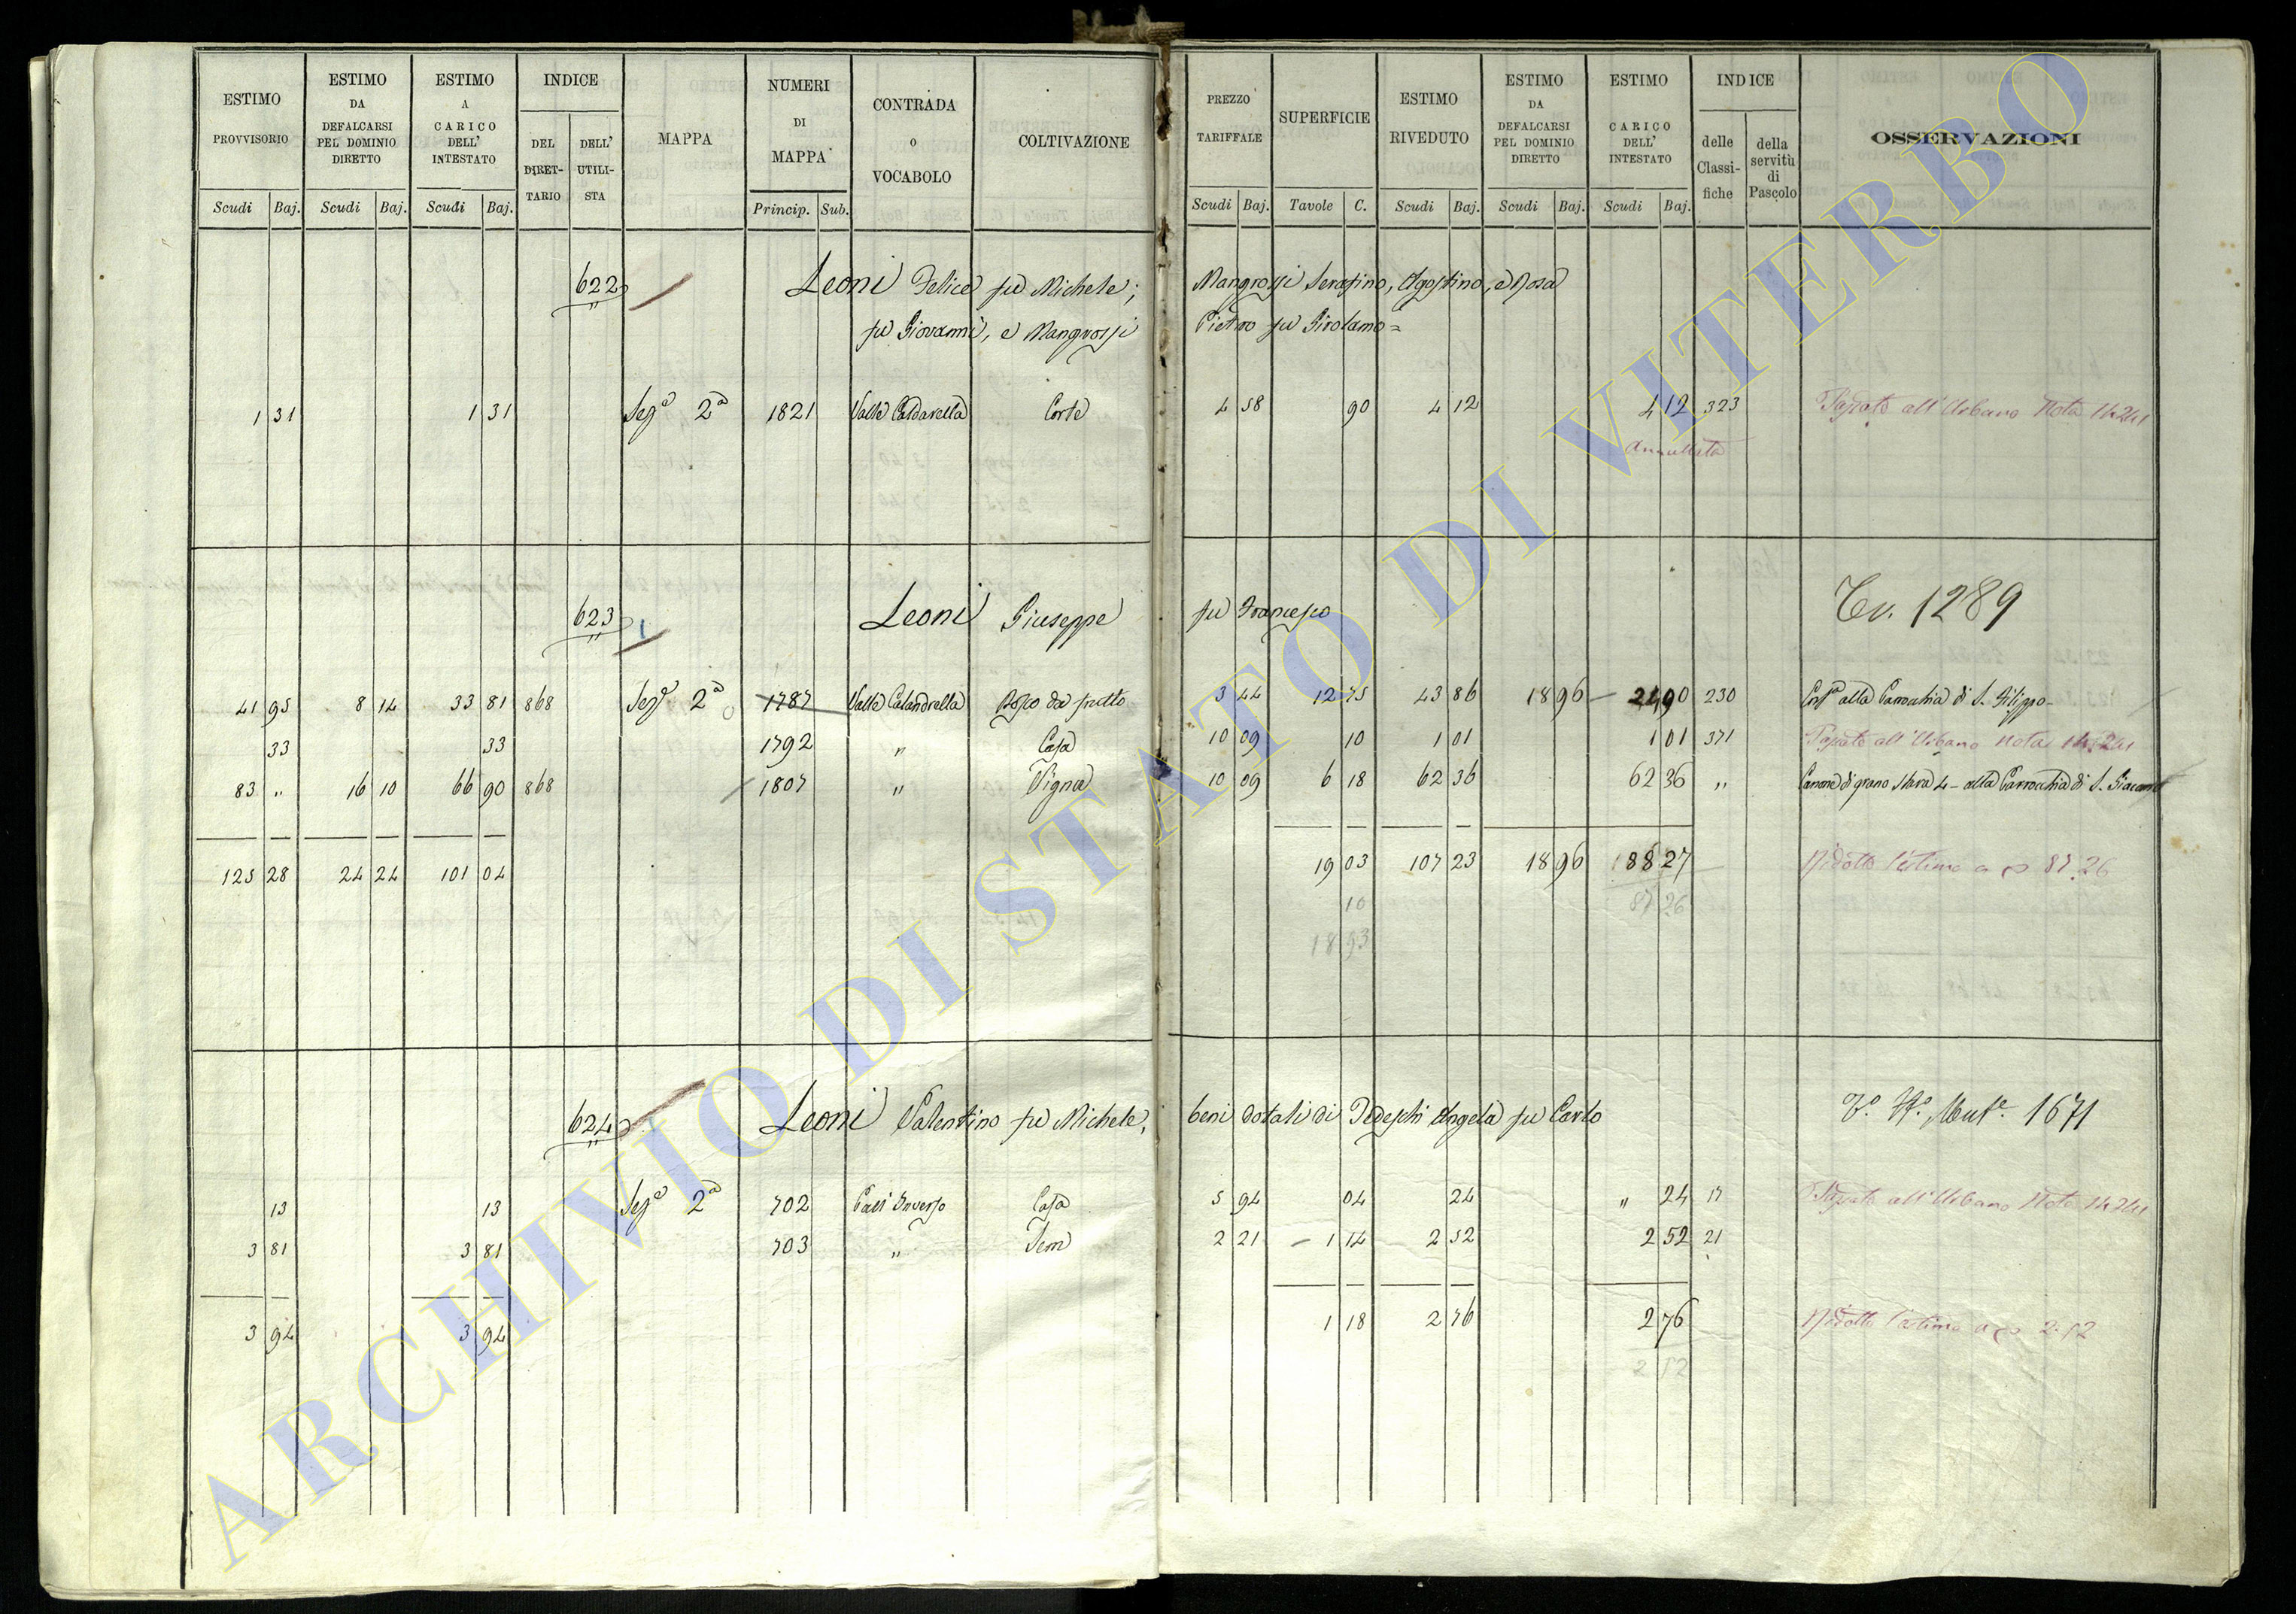 ESTIMO PROVVISORIO
ESTIMO DA DEFALCARSI PEL DOMINIO DIRETTO
ESTIMO A CARICO DELL' INTESTATO
INDICE
DEL DIRET-TARIO
DELL' UTILI-STA
MAPPA
NUMERI DI MAPPA
CONTRADA O VOCABOLO
COLTIVAZIONE
Scudi Baj. Scudi Baj. Scudi Baj. Princip. Sub.
PREZZO TARIFFALE
SUPERFICIE
ESTIMO RIVEDUTO
ESTIMO DA DEFALCARSI PEL DOMINIO DIRETTO
ESTIMO A CARICO DELL' INTESTATO
INDICE
delle Classi-fiche
della servitù di Pascolo
OSSERVAZIONI
Scudi Baj. Tavole C. Scudi Baj. Scudi Baj. Scudi Baj.
622 Leoni Felice fu Michele; Mangrossi Serafino, Agostino, e Rosa
fu Giovanni, e Mangrossi Pietro fu Girolamo =
1 31 1 31 Sezᵉ 2ª 1821 Valle Caldarella Corte 4 58 90 4 12 4 12 323 Passato all'Urbano Nota 14241
Annullata
623 1 Leoni Giuseppe fu Francesco Tv. 1289
41 95 8 14 33 81 868 Sezᵉ 2ª 1787 Valle Calandrella Bosco da frutto 3 44 12 75 43 86 18 96 24 90 230 alla Parrochia di S. Filippo
33 33 1792 " Casa 10 09 10 1 01 1 01 371 Passato all'Urbano Nota 14241
83 " 16 10 66 90 868 1807 " Vigna 10 09 6 18 62 36 62 36 " Canone di grano Stara 4 - alla Parrochia di S. Giacomo
125 28 24 24 101 04 19 03 107 23 18 96 88 27 Ridotto l'estimo a 87.26
10 87 26
18 93
624 Leoni Valentino fu Michele, beni dotali di Tedeschi Angela fu Carlo Vº. Mutᵉ. 1671
13 13 Sezᵉ 2ª 702 Pall'Inverso Casa 5 94 04 24 " 24 17 Passato all'Urbano Nota 14241
3 81 3 81 703 " Sem 2 21 1 14 2 52 2 52 21
3 94 3 94 1 18 2 76 2 76 Ridotto l'estimo a 2.52
2 52
ARCHIVIO DI STATO DI VITERBO